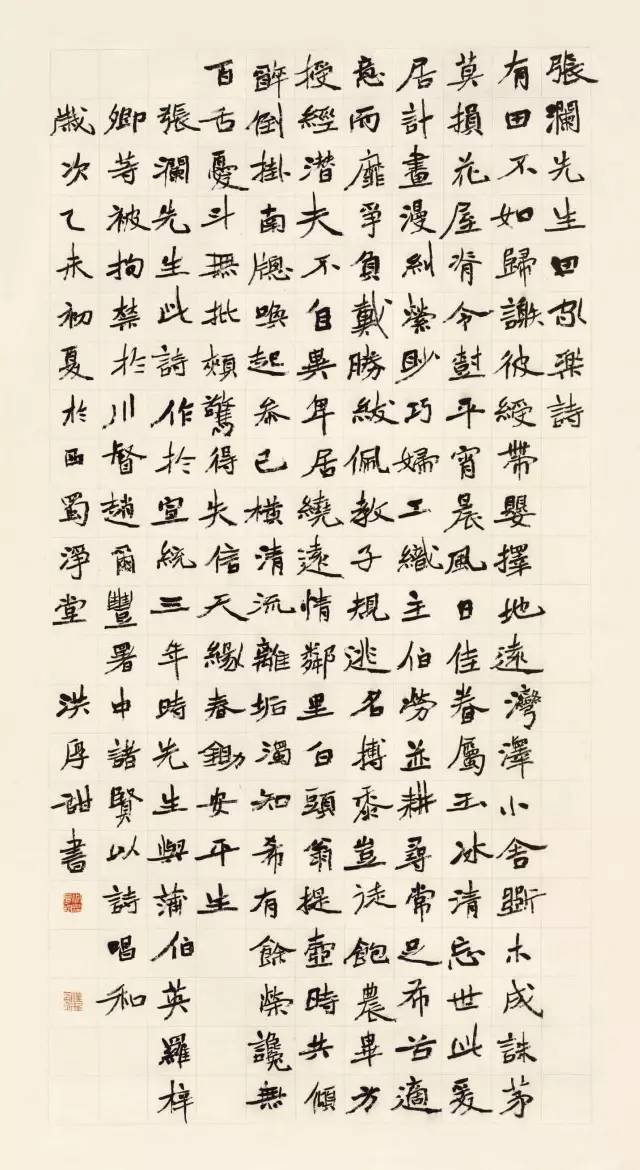 張瀾先生田家樂詩
有田不如歸謝彼綬帶嬰擇地遠灣澤小舍斲木成誅茅
莫損花屋脊令封平宵晨風日佳眷屬玉冰清忘世此爰
居計畫漫糾縈眇巧婦工織主伯勞並耕尋常足布谷適
意而靡爭負戴勝紱佩教子規逃名搏黍豈徒飽農畢方
授經潛夫不自異卑居繞遠情鄰里白頭翁提壺時共傾
醉倒掛南牕喚起參已橫清流離垢濁知希有餘榮讒無
百舌憂斗無批頰驚得失信天緣春鋤安平生
張瀾先生此詩作於宣統三年時先生與蒲伯英羅梓
卿等被拘禁於川督趙爾豐署中諸賢以詩唱和
歲次乙未初夏於西蜀淨堂 洪厚甜書